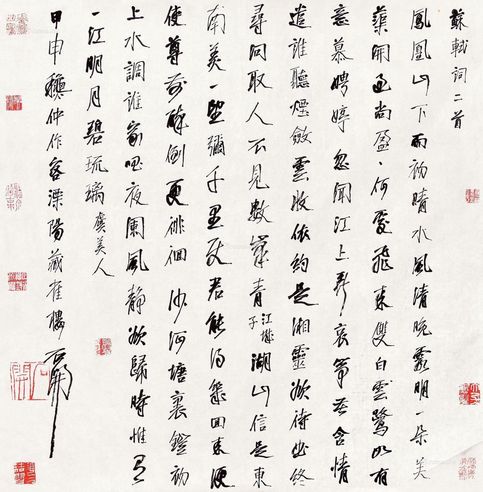 蘇軾詞二首
鳳凰山下雨初晴水風清晚霞明一朵芙
蕖開過尚盈、何處飛來雙白鷺如有
意慕娉婷忽聞江上弄哀箏苦含情
遣誰聽煙斂雲收依約是湘靈欲待曲終
尋問取人不見數峯青江城子湖山信是東
南美一望彌千里使君能得幾回來便
使尊前醉倒更徘徊沙河塘裏鐙初
上水調誰家唱夜闌風靜欲歸時惟有
一江明月碧琉璃虞美人
甲申仲作客溧陽藏樓石開